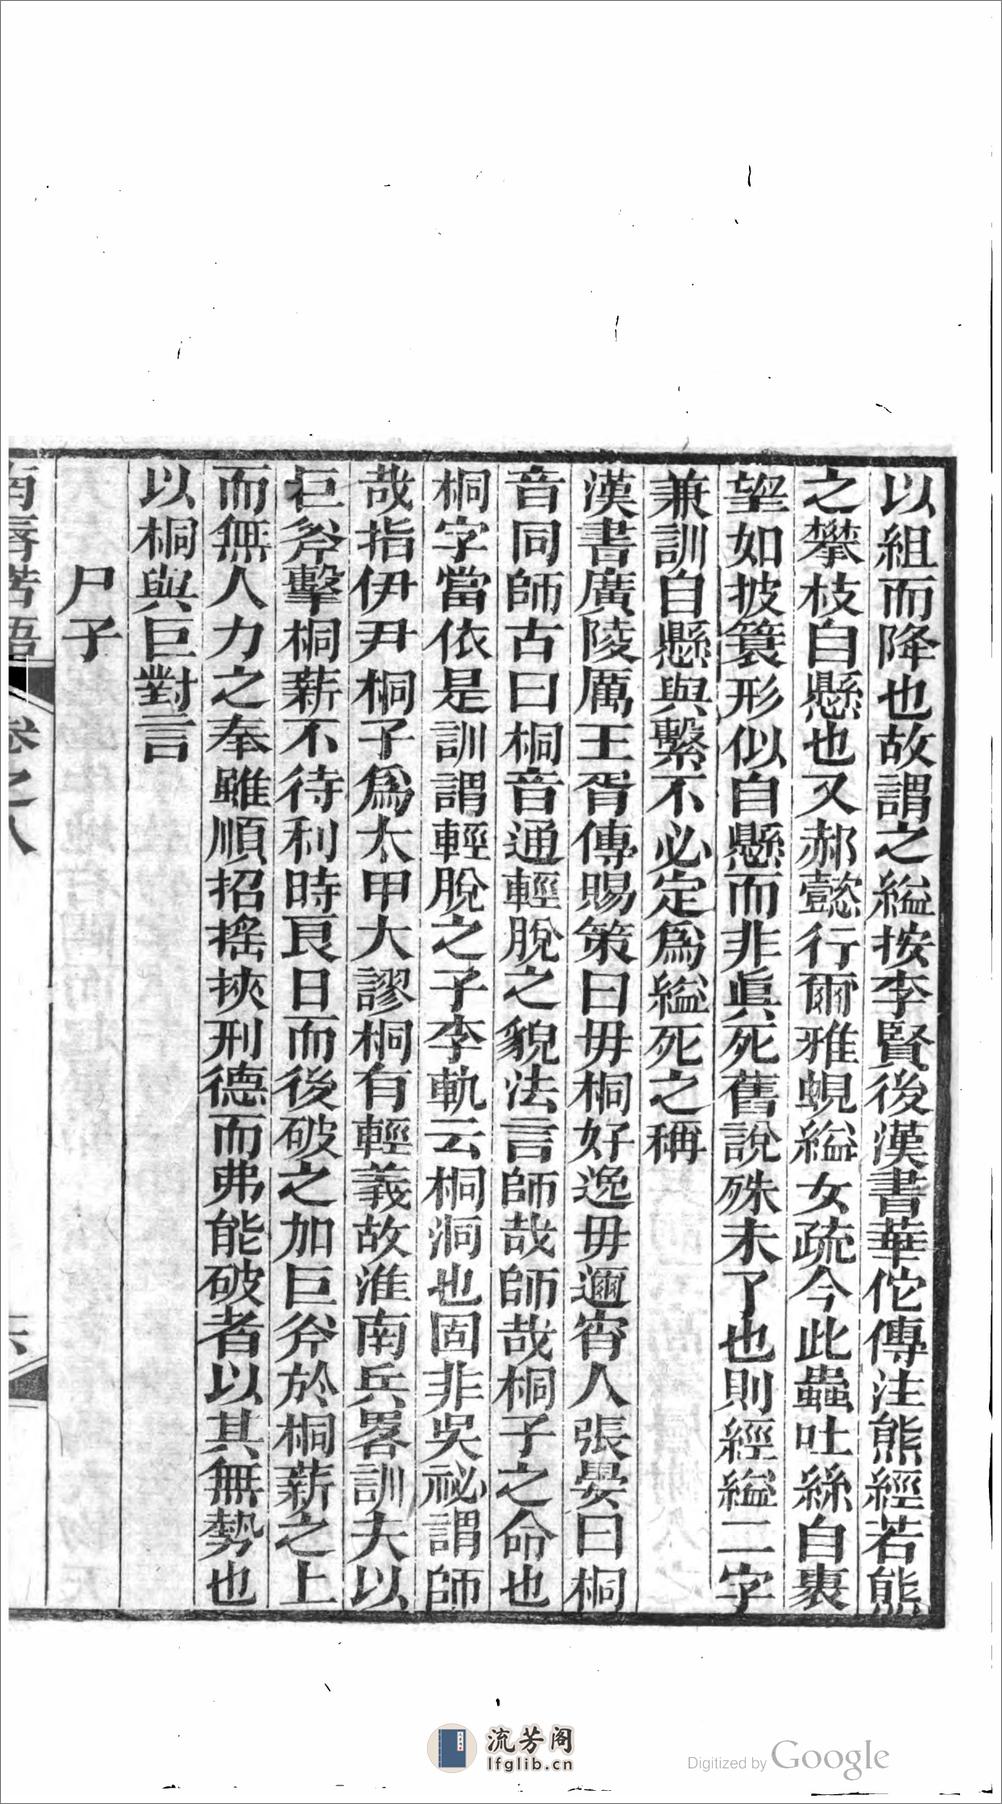 以組而降也故謂之縊按李賢後漢書華佗傳注熊經若熊
之攀枝自懸也又郝懿行爾雅蜆縊女疏今此蟲吐絲自裹
望如披蓑形似自懸而非眞死舊說殊未了也則經縊二字
兼訓自懸與繫不必定爲縊死之稱
漢書廣陵厲王胥傳賜策曰毋桐好逸毋邇宵人張晏曰桐
音同師古曰桐音通輕脫之貌法言師哉師哉桐子之命也
桐字當依是訓謂輕脫之子李軌云桐洞也固非吳祕謂師
哉指伊尹桐子爲太甲大謬桐有輕義故淮南兵畧訓夫以
巨斧擊桐薪不待利時良日而後破之加巨斧於桐薪之上
而無人力之奉雖順招搖挾刑德而弗能破者以其無勢也
以桐與巨對言
尸子
南漘楛語 卷之八 六
流芳阁
lfglib.cn
Digitized by Google